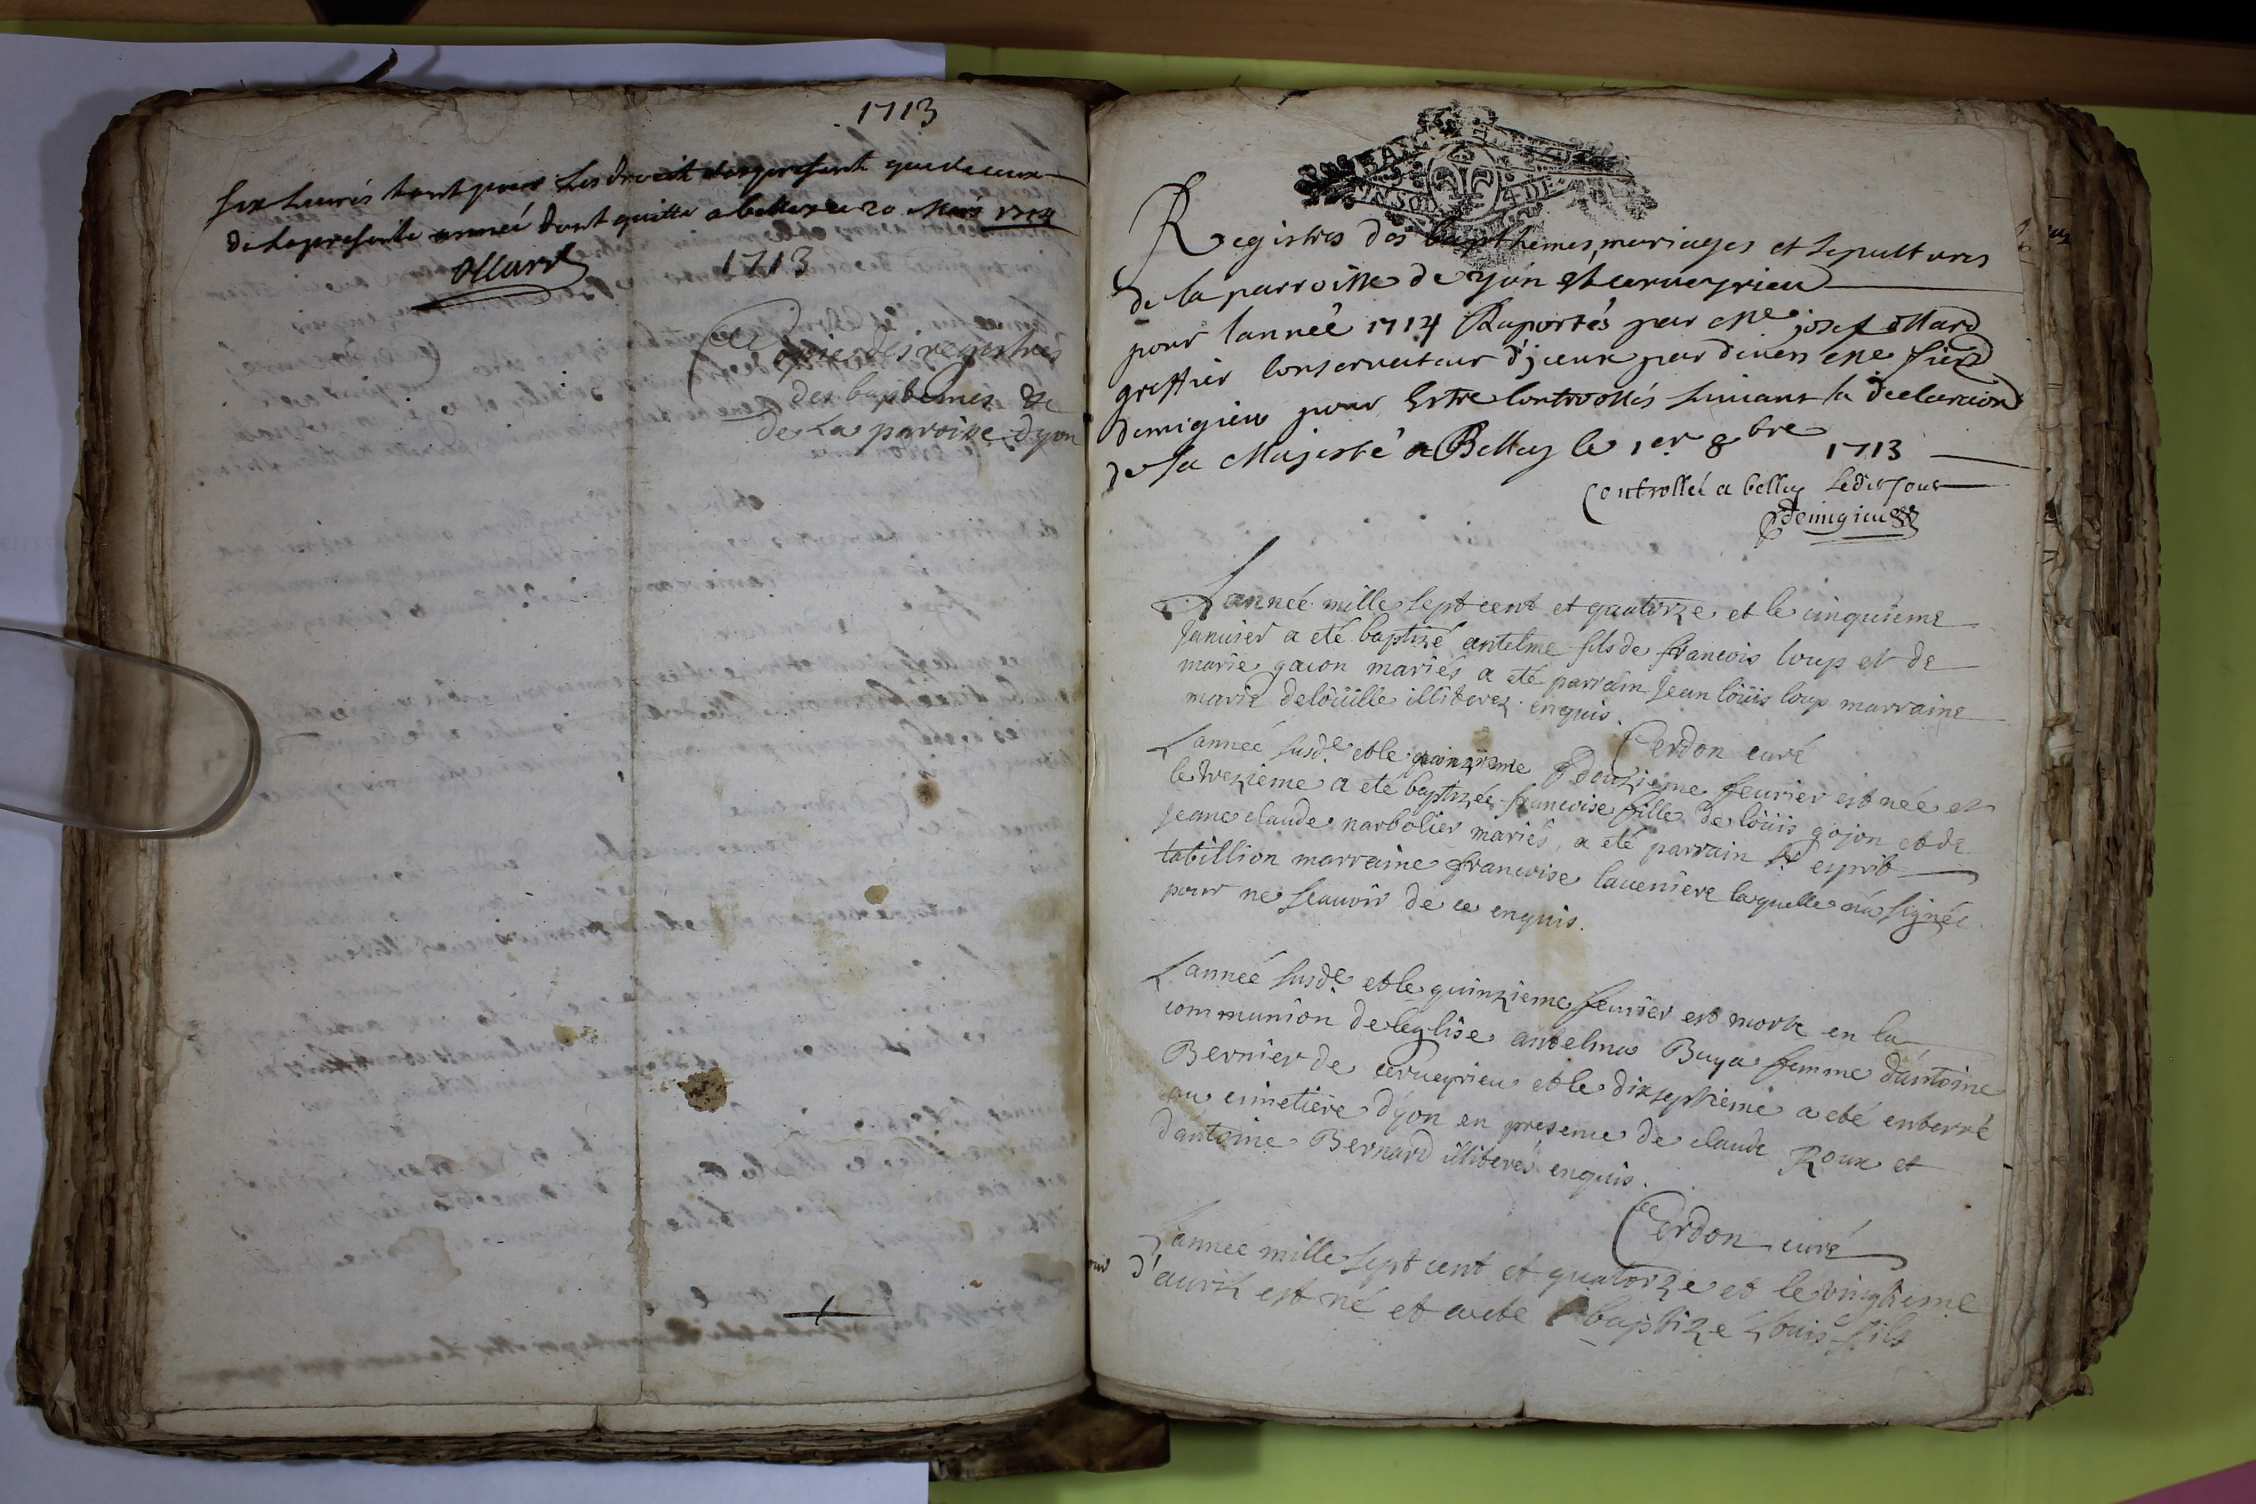 1713
six livres tant pour les droits du present que de ceux
de la presente année dont quitte a belley ce 20 Mars 1714
Ollard
1713
Copie des registres
des baptemes &c
de La paroisse dyon
Registres des bapthemes, mariages et sepultures
de la parroisse de yon et cerveyrieu
pour lannéé 1714 Raportés par Me josef ollard
greffier conservateur d'jceux par devers Me fierd
demigieu pour Estre controollés suivant la declaraion
de sa Majesté a Belley le 1er 8bre 1713
Controllé a belley Ledit Jour
Demigieu
Lannéé mille sept cent et quatorze et le cinquieme
Januier a eté baptizé antelme fils de francois loup et de
marie gacon mariés a eté parrain Jean loüis loup marraine
marie deloüille illiterez enquis.
Cerdon curé
Lannéé susde. et le douzieme feurier est néé et
le trezieme a eté baptizéé francoise fille de loüis gojon et de
Jeane claude narbolier mariés, a eté parrain sr. esprit
tabillion marraine francoise laueniere laquelle n'a signéé
pour ne scauoir de ce enquis.
Lannéé susde. et le quinzieme feurier est morte en la
communion de leglise antelma Buya femme dantoine
Bernier de cerueyrieu et le dixseptieme a eté enterré
au cimetiere dyon en presence de claude Roux et
dantoine Bernard illiterés enquis.
Cerdon curé
Lannéé mille sept cent et quatorze et le vingtieme
d'auril est né et a eté baptizé Louis fils